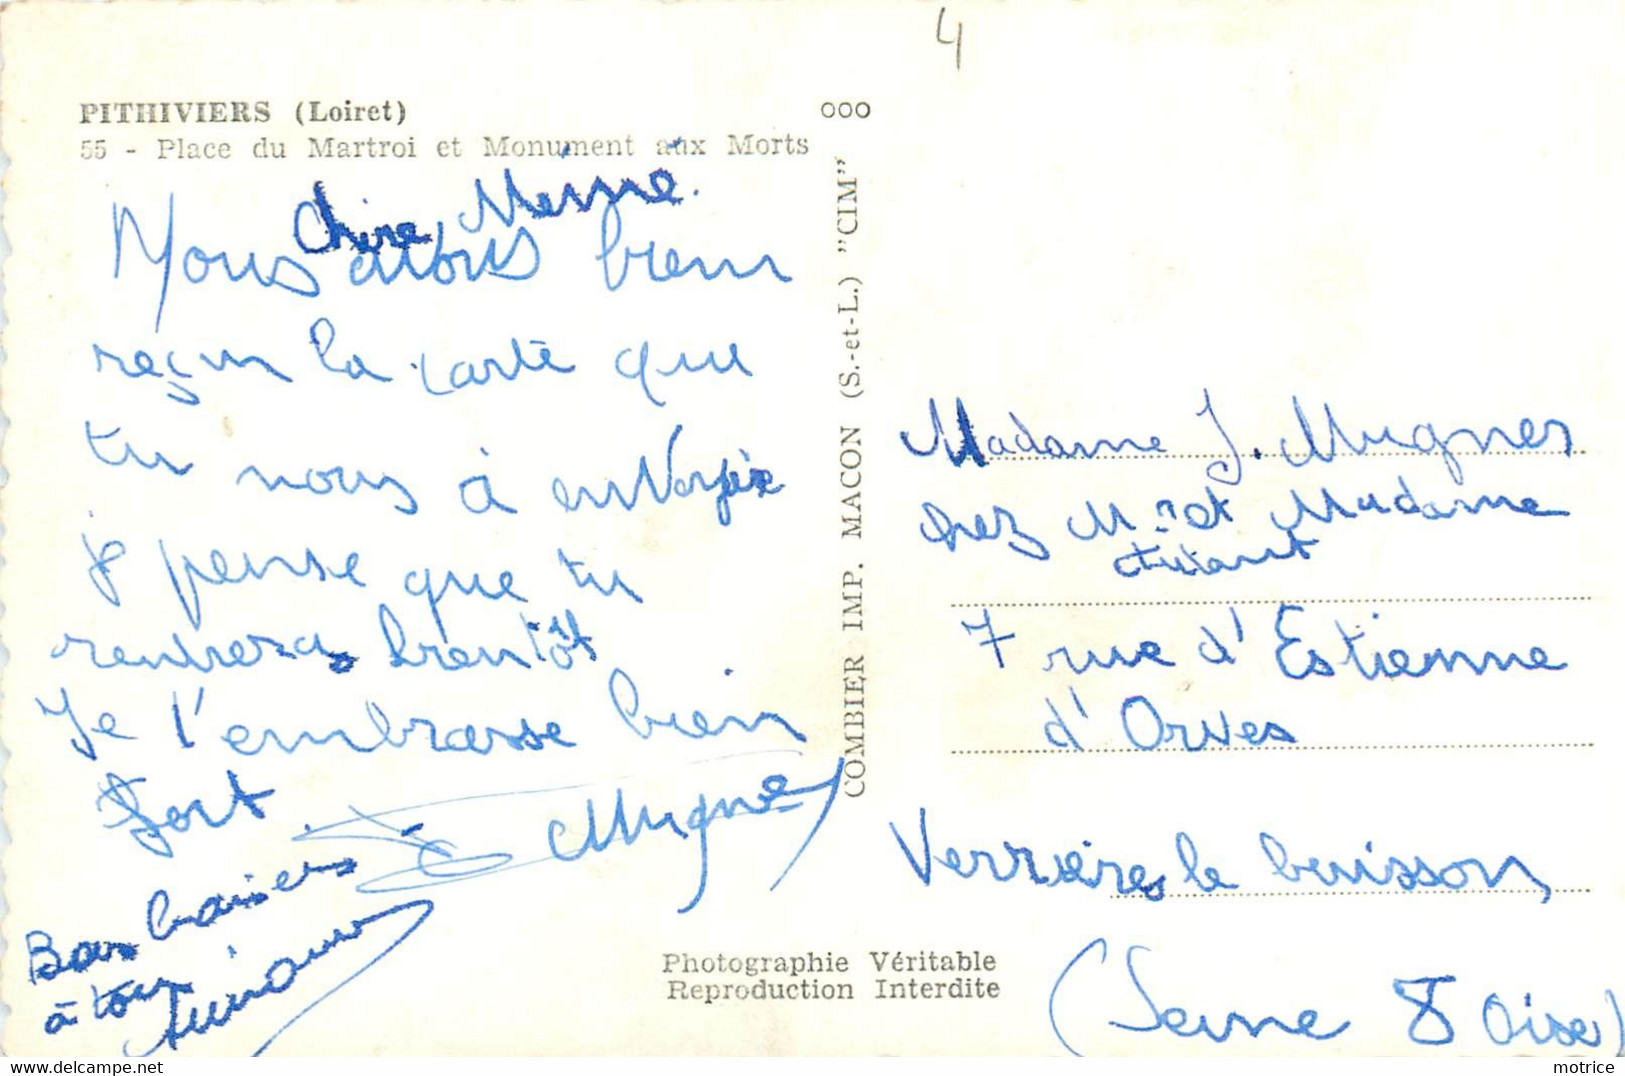 4
PITHIVIERS (Loiret)
55 - Place du Martroi et Monument aux Morts
ooo
Chère Mémé.
Nous avons bien
reçu la carte que
tu nous à envoyé
je pense que tu
rentreras bientôt
Je t'embrasse bien
fort.
Mugne
Bons baisers
à tous
COMBIER IMP. MACON (S.-et-L.) "CIM"
Madame J. Mugner
chez Mr et Madame
7 rue d'Estienne
d'Orves
Verrières le buisson
(Seine & Oise)
Photographie Véritable
Reproduction Interdite
motrice